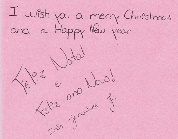 I wish you a merry Christmas
and a Happy New year
Feliz Natal
e
Feliz ano Novo!